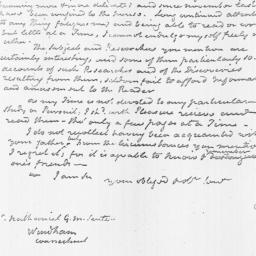 becoming more & more delicate) and since November last
have been confined to the
to any long fatigue, and being able to read or wri
but little at a time, I cannot employ myself freely
either.
The Subjects and Researches you mention are
certainly interesting, and some of them particularly so.
accounts of such Researches and of the Discoveries
resulting from them, seldom fail to afford information
and amusement to the Reader
As my time is not devoted to any particular
Study or Pursuit, I shd. with Pleasure receive and
read them - tho' only a few pages at a Time -
I do not recollect having been acquainted with
your father. From the Circumstances you mention
I regret it, for it is agreeable to know & remember
one's friends -
I am Sir
your obliged & obt. Servt
Nathaniel G. M. Senter
Windham
Connecticut